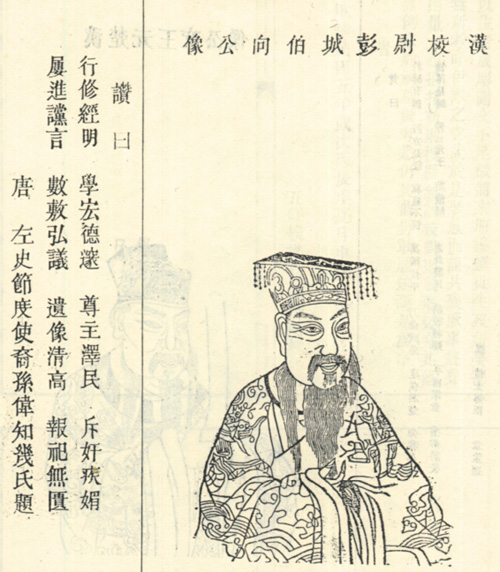 漢校尉彭城伯向公像
讚曰
行修經明 學宏德邃 尊主澤民 斥奸疾媢
屢進讜言 數敷弘議 遺像清高 報祀無匱
唐 左史節度使裔孫偉知幾氏題